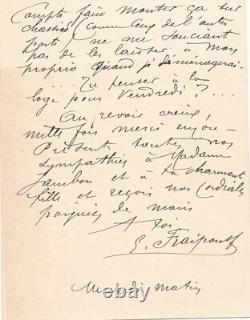 Compte faire monter ça sur
chassis comme ceux de l'autre
parti ne me souciant
pas de les laisser à mon
proprio quand je déménagerai
... Tu penses à la
loge pour vendredi ? ...
Au revoir vieux,
mille fois merci encore
Présente toutes nos
sympathies à Madame
Jambon et à ta charmante
fille et reçois nos cordiales
poignées de mains
A toi
G. Fraipont
Mercredi matin
ebay